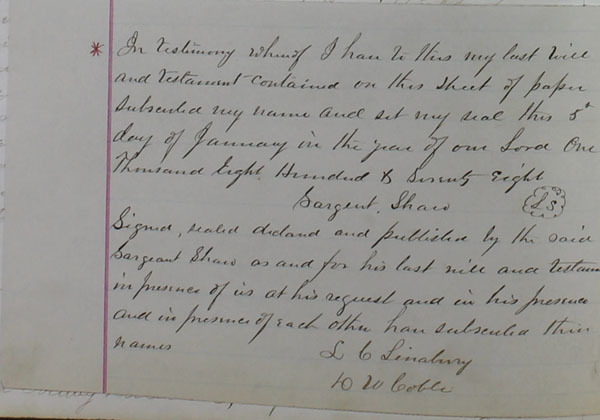 * In testimony whereof I have to this my last will
and testament contained on this sheet of paper
subscribed my name and set my seal this 5th
day of January in the year of our Lord One
Thousand Eight Hundred & Seventy Eight
Sargent. Shaw LS
Signed, sealed declared and published by the said
Sargeant Shaw as and for his last will and testam
in presence of us at his request and in his presence
and in presence of each other have subscribed their
names
L C Linabury
D W Coble